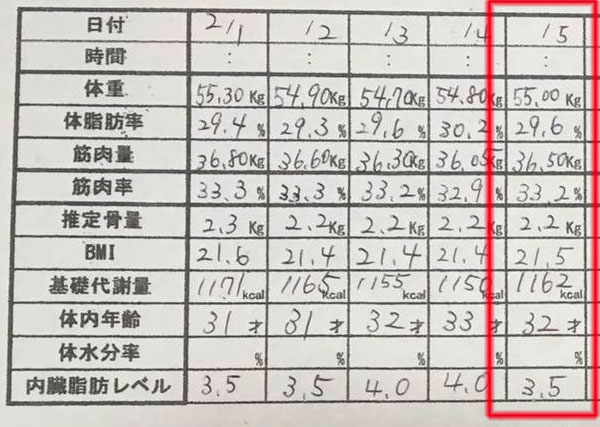 日付 2/1 /2 /3 /4 /5
時間 : : : : :
体重 55.30Kg 54.90Kg 54.70Kg 54.80Kg 55.00Kg
体脂肪率 29.4% 29.3% 29.6% 30.2% 29.6%
筋肉量 36.80Kg 36.60Kg 36.30Kg 36.05Kg 36.50Kg
筋肉率 33.3% 33.3% 33.2% 32.9% 33.2%
推定骨量 2.3Kg 2.2Kg 2.2Kg 2.2Kg 2.2Kg
BMI 21.6 21.4 21.4 21.4 21.5
基礎代謝量 1171kcal 1165kcal 1155kcal 1150kcal 1162kcal
体内年齢 31才 31才 32才 33才 32才
体水分率 % % % % %
内臓脂肪レベル 3.5 3.5 4.0 4.0 3.5